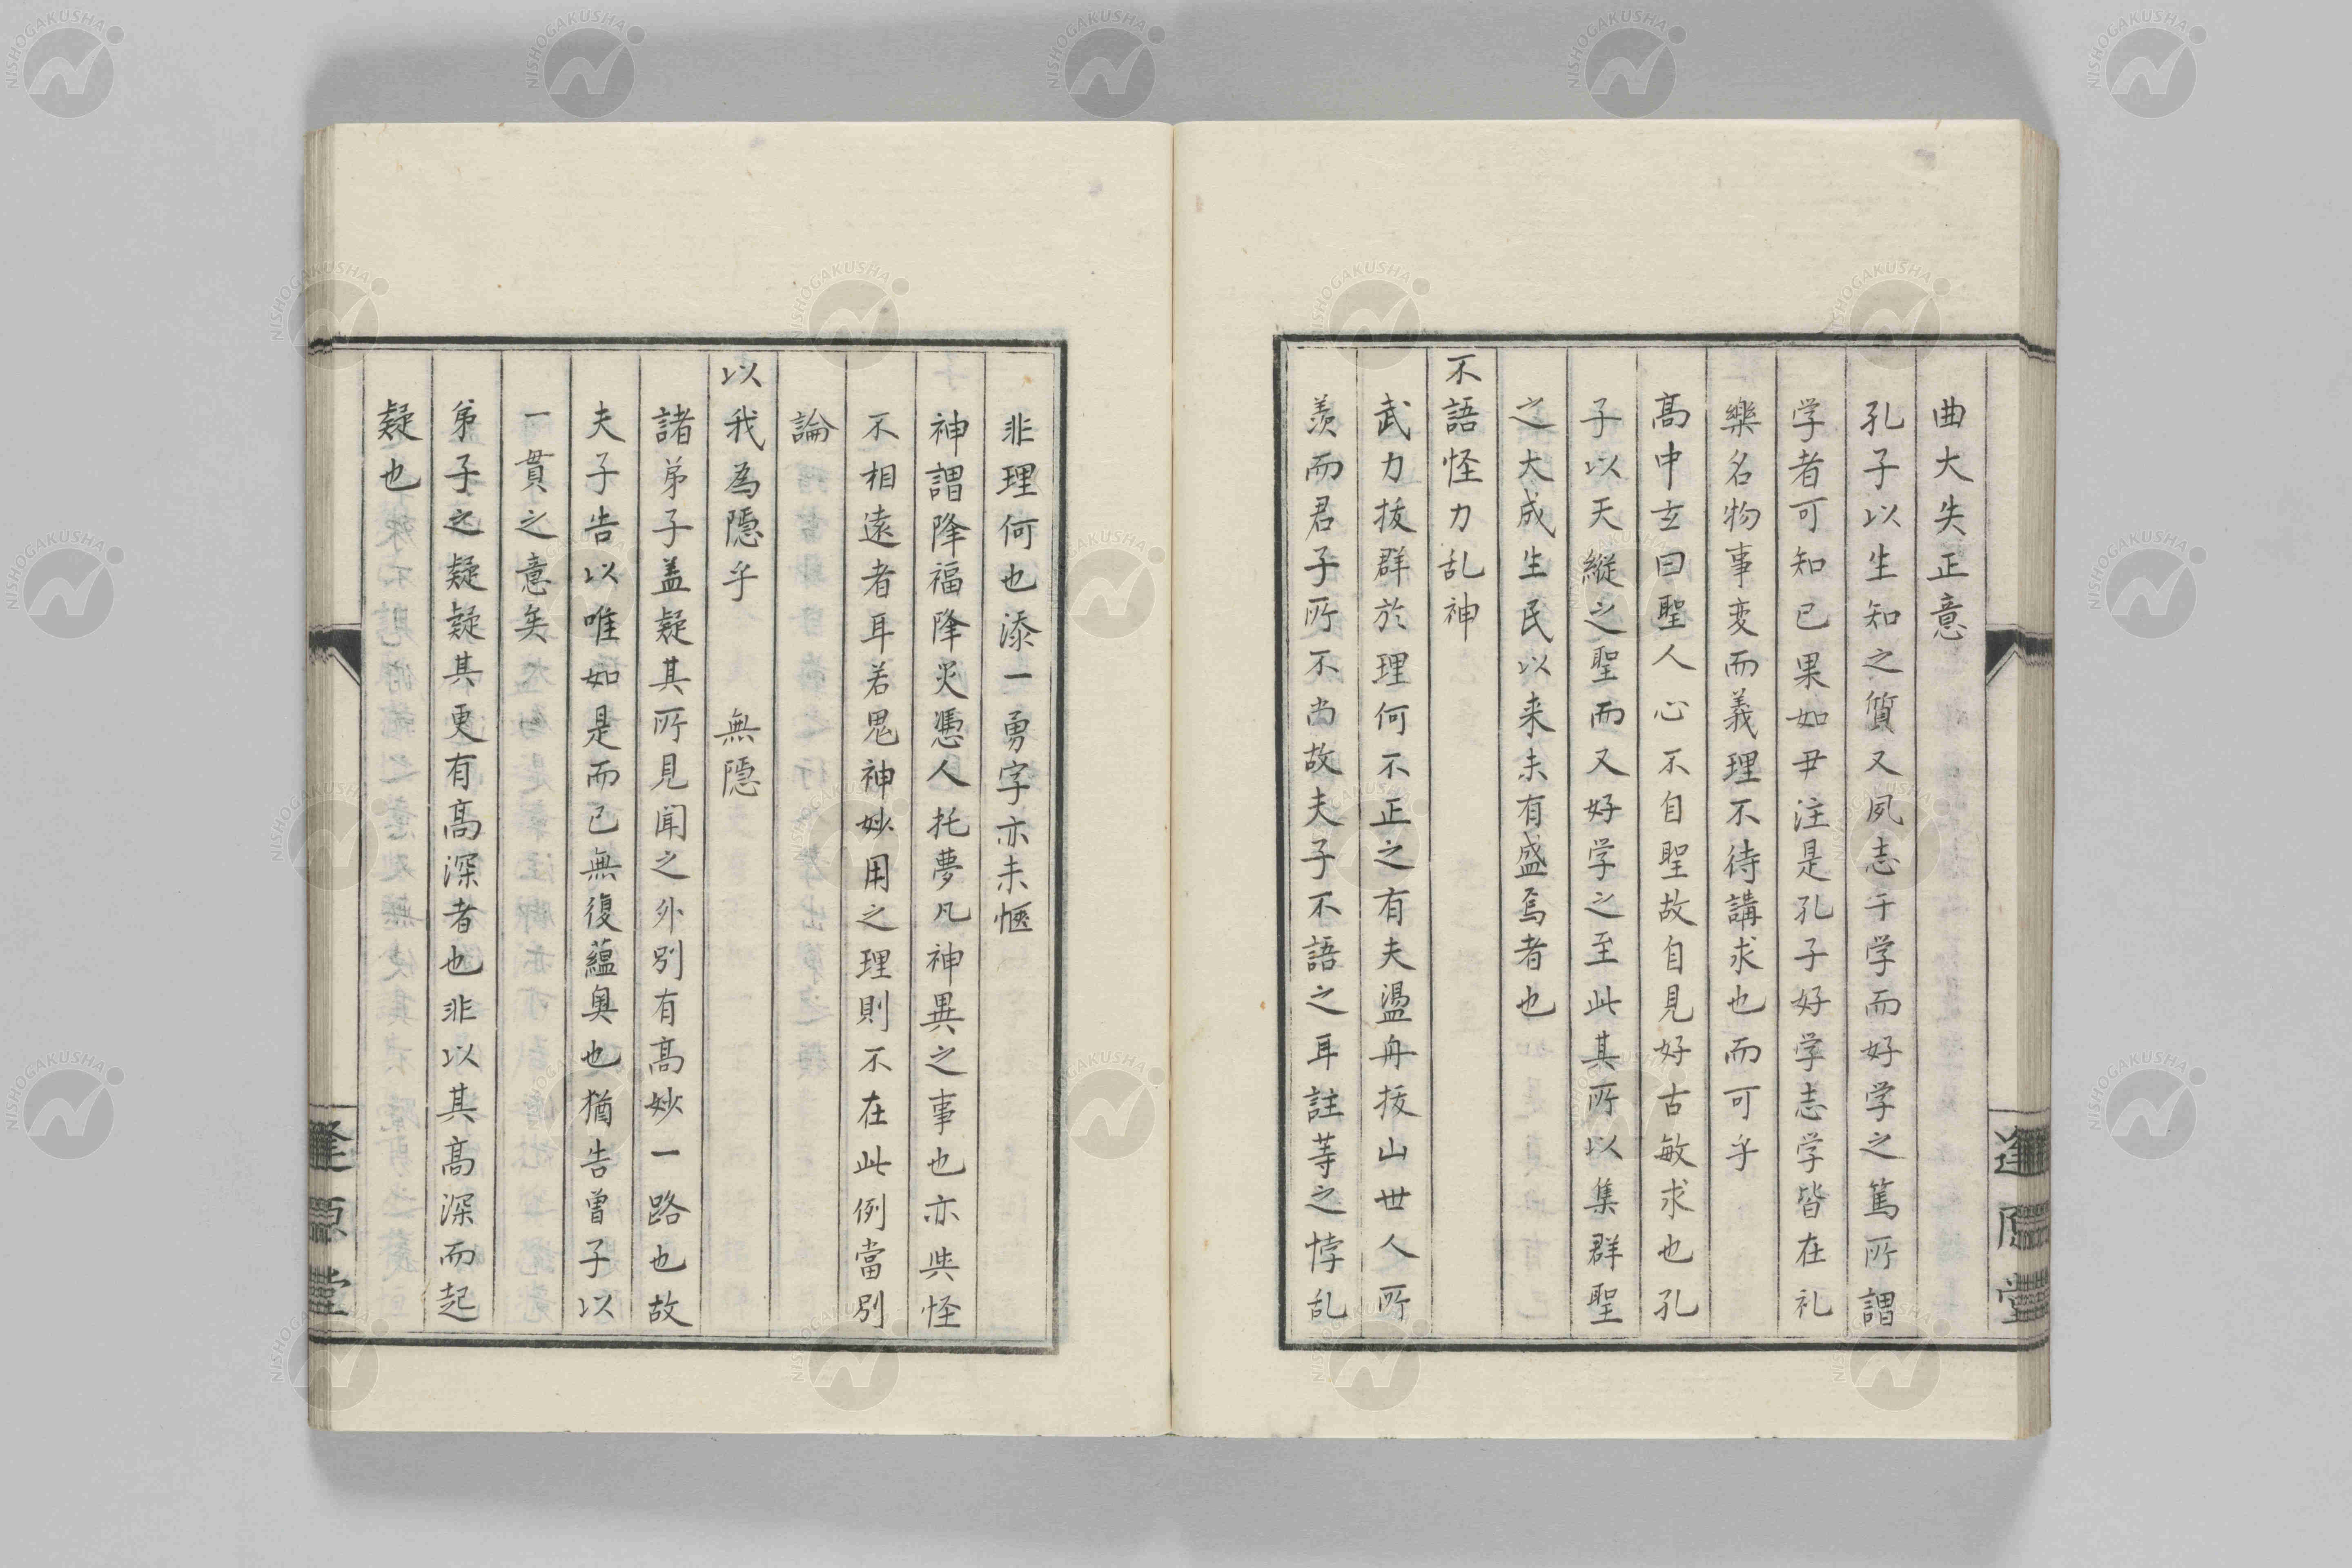 曲大失正意
孔子以生知之質又夙志于学而好学之篤所謂
学者可知已果如尹注是孔子好学志学皆在礼
樂名物事变而義理不待講求也而可乎
高中玄曰聖人心不自聖故自見好古敏求也孔
子以天縦之聖而又好学之至此其所以集群聖
之大成生民以来未有盛焉者也
不語怪力乱神
武力抜群於理何不正之有夫盪舟抜山世人所
羨而君子所不尚故夫子不語之耳註䓁之悖乱
逢原堂
非理何也添一勇字亦未愜
神謂降福降災憑人托夢凡神異之事也亦与怪
不相遠者耳若鬼神妙用之理則不在此例當別
論
以我為隠乎　無隠
諸弟子盖疑其所見聞之外別有高妙一路也故
夫子告以唯如是而已無復蘊奥也猶告曽子以
一貫之意矣
弟子之疑疑其更有高深者也非以其高深而起
疑也
逢原堂
NISHOGAKUSHA